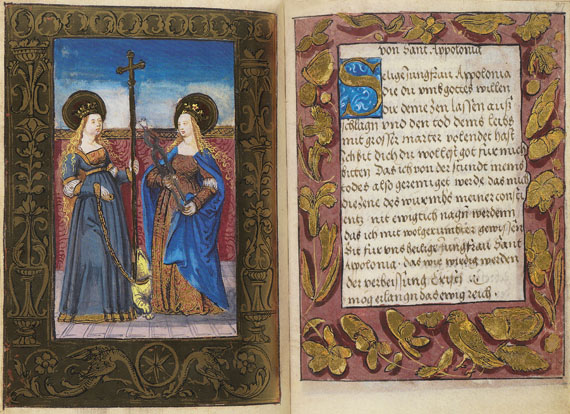 von Sant Appolonia
Selige Jungfrau Appolonia
die du vmb gottes willen
dir deine zen lassen auss
schlagn vnd den tod deins leibs
mit grosser marter volendet hast
Ich bit dich du wollest got fur mich
bitten Das ich von der stundt meins
todes also gereiniget werde das mich
die zene des wurmbs meiner consci
nit ewigtich nagn werdenn
das ich mit wolgerumbter gewissen
Bit fur vns heilige Jungfrau Sant
Appolonia · das wir wirdig werden
der verheissung Cristi ·
mog erlangn das ewig reich ·